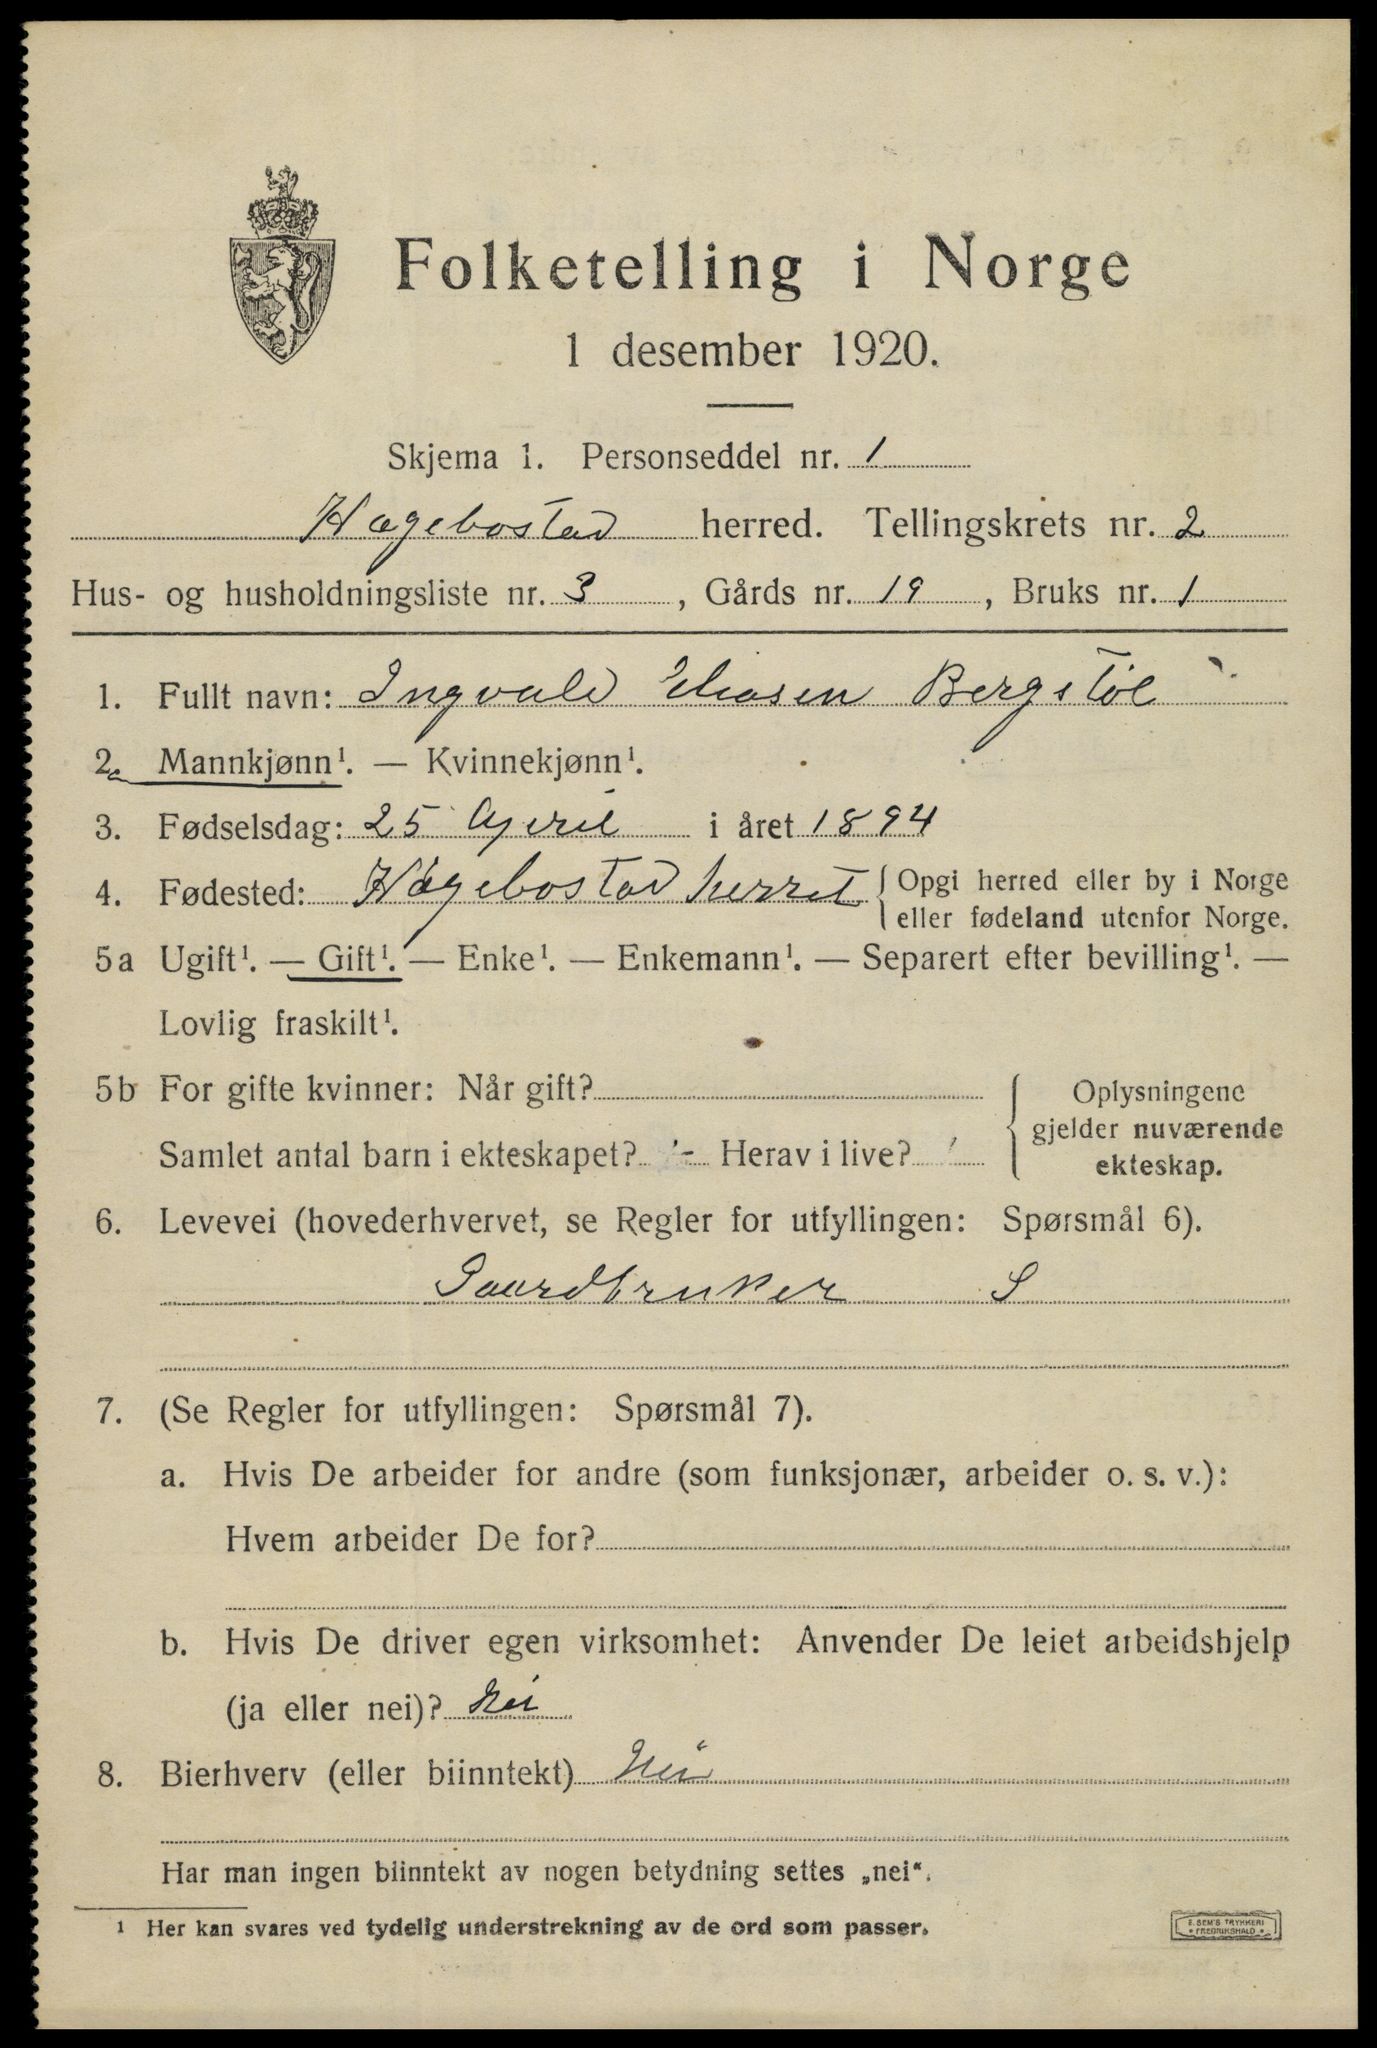 Folketelling i Norge
1 desember 1920.
Skjema 1. Personseddel nr. 1
Hægebostad herred. Tellingskrets nr. 2
Hus- og husholdningsliste nr. 3, Gårds nr. 19, Bruks nr. 1
1. Fullt navn: Ingvald Eliasen Bergstøl
2. Mannkjønn¹. — Kvinnekjønn¹.
3. Fødselsdag: 25 April i året 1894
4. Fødested: Hægebostad herret { Opgi herred eller by i Norge
eller fødeland utenfor Norge.
5a Ugift¹. — Gift¹. — Enke¹. — Enkemann¹. — Separert efter bevilling¹. —
Lovlig fraskilt¹.
5b For gifte kvinner: Når gift? { Oplysningene
gjelder nuværende
Samlet antal barn i ekteskapet? - Herav i live?
ekteskap.
6. Levevei (hovederhvervet, se Regler for utfyllingen: Spørsmål 6).
Gaardbruker S
7. (Se Regler for utfyllingen: Spørsmål 7).
a. Hvis De arbeider for andre (som funksjonær, arbeider o. s. v.):
Hvem arbeider De for?
b. Hvis De driver egen virksomhet: Anvender De leiet arbeidshjelp
(ja eller nei)? Nei
8. Bierhverv (eller biinntekt) Nei
Har man ingen biinntekt av nogen betydning settes „nei“.
¹ Her kan svares ved tydelig understrekning av de ord som passer.
E. SEM'S TRYKKERI
• FREDRIKSHALD •